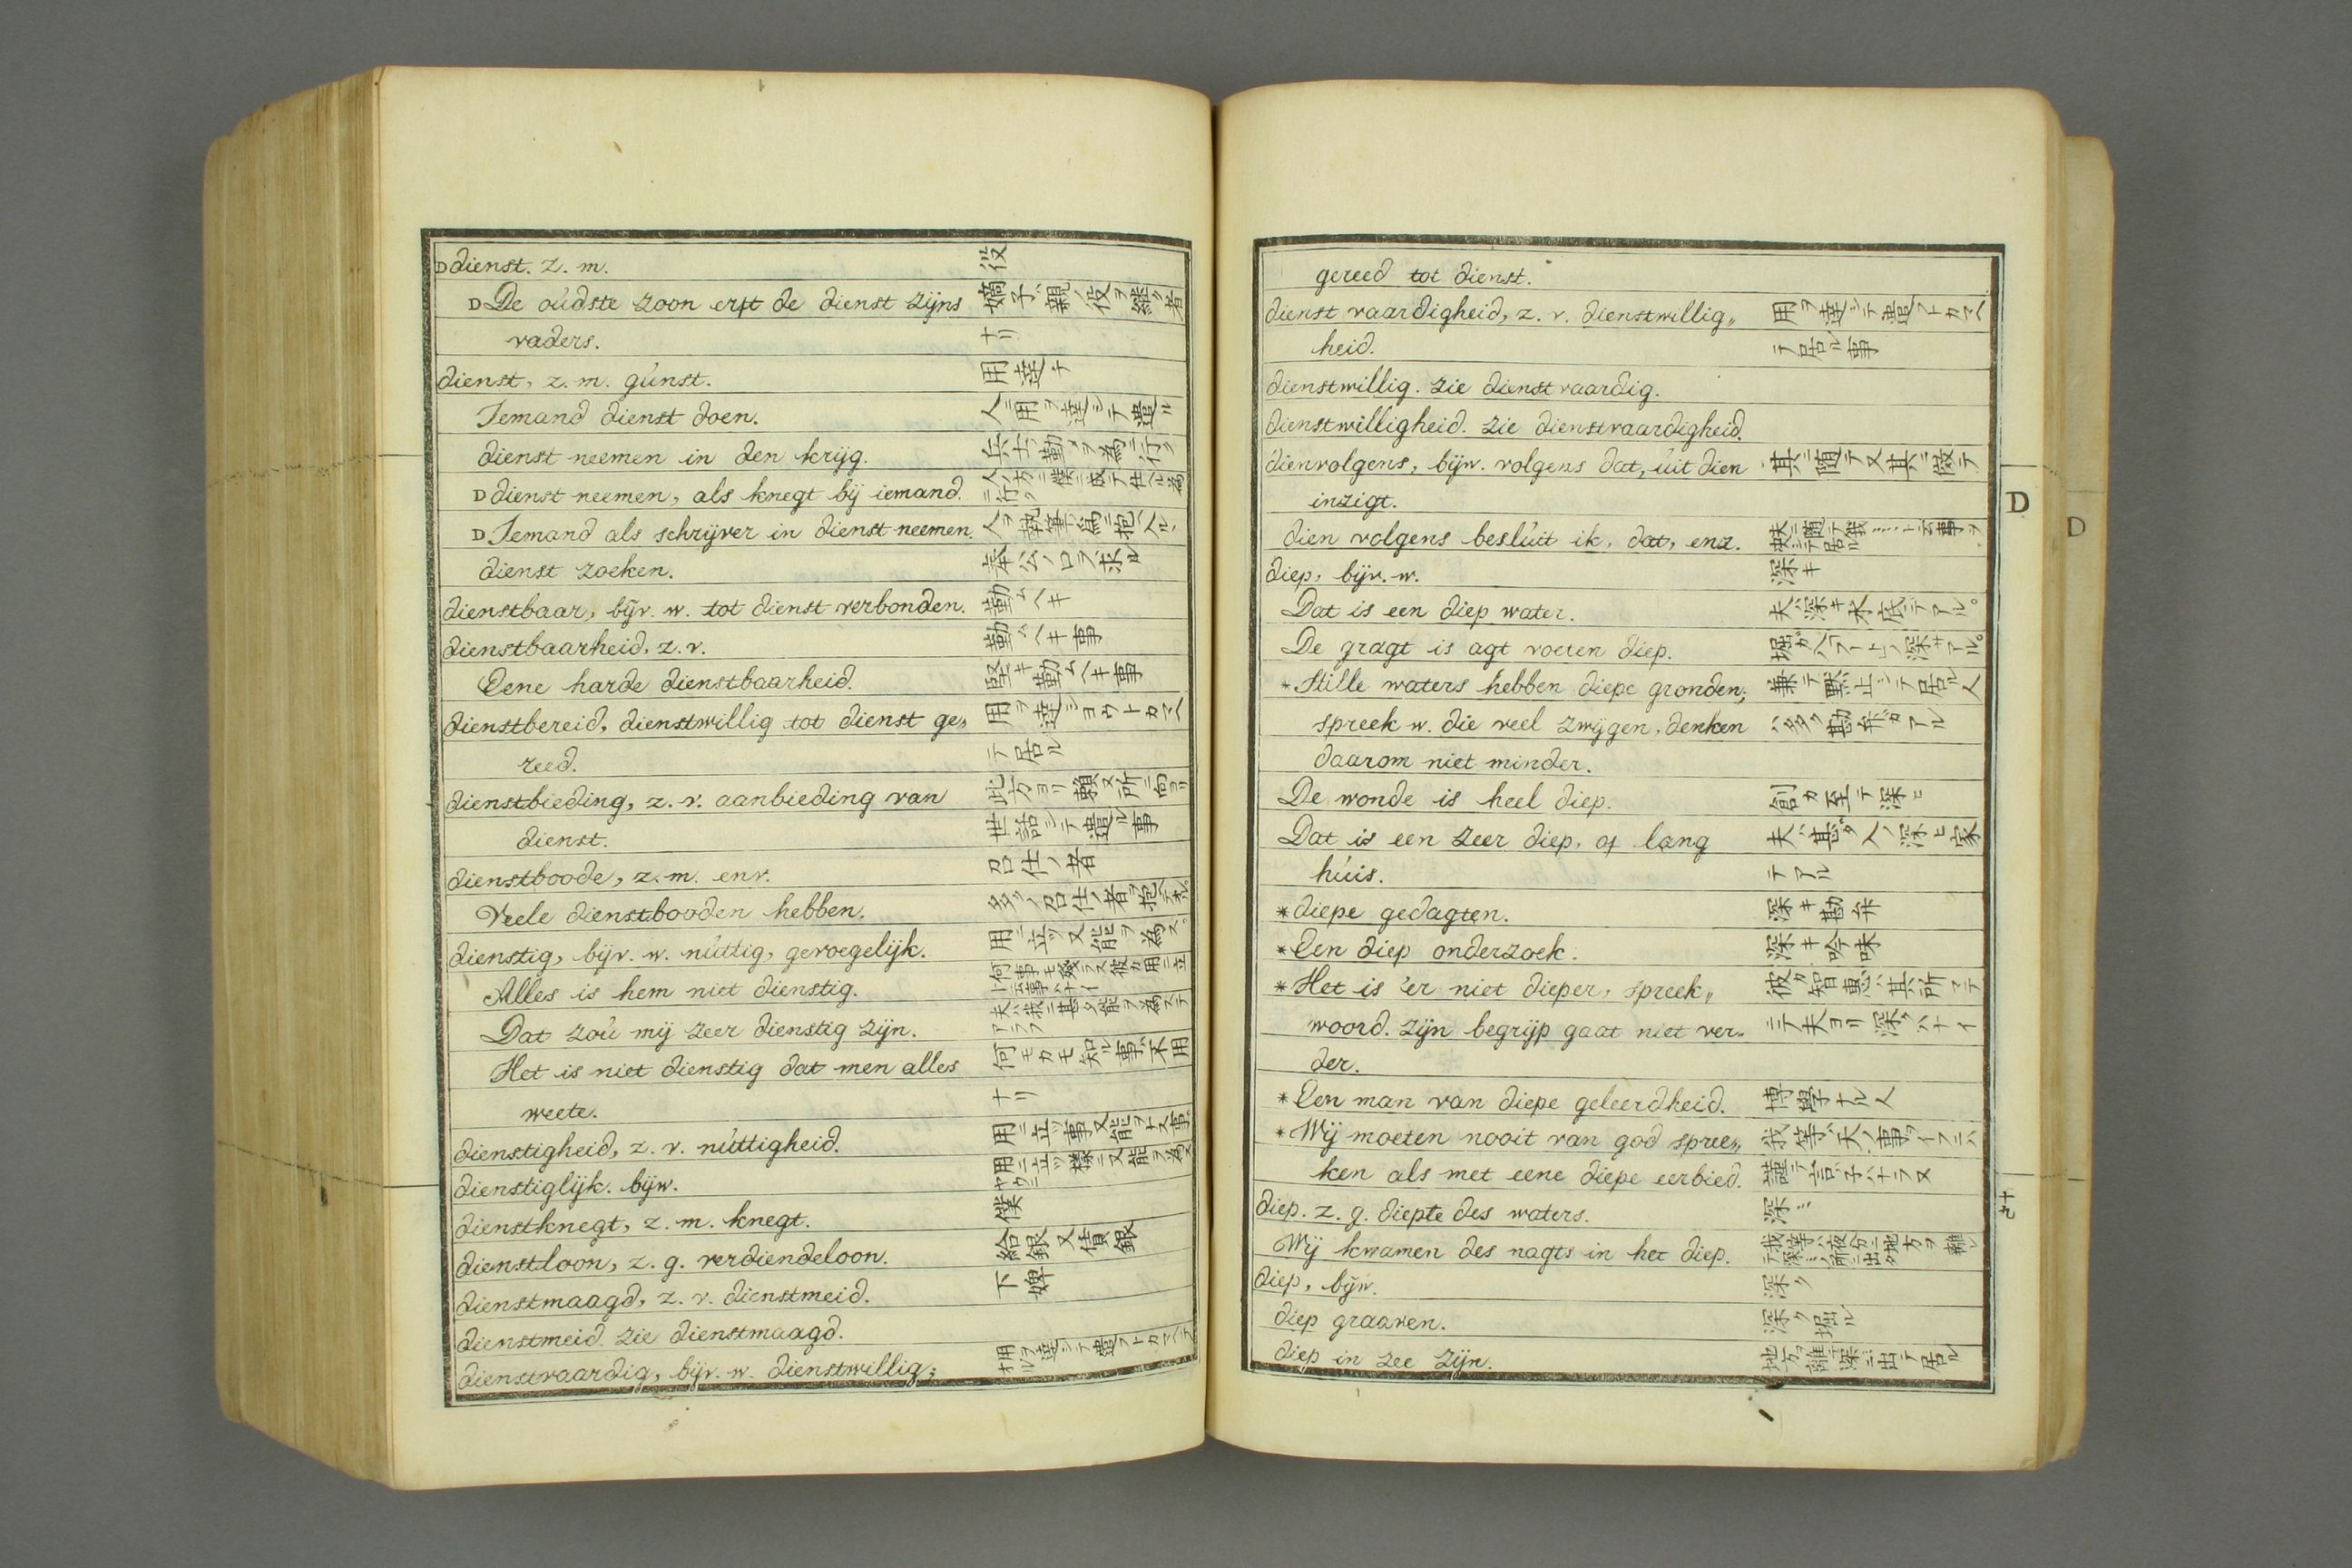 D dienst. z. m. 役
D De oúdste zoon erft de dienst zijns 嫡子ハ親ノ役ヲ継ク者
vaders. ナリ
dienst, z. m. gúnst. 用達テ
Iemand dienst doen. 人ニ用ヲ達シテ遣ル
dienst neemen in den krijg. 兵士ノ勤メヲ為ニ行ク
D dienst neemen, als knegt bij iemand. 人ノ方ニ僕ニ成テ仕ヘル為ニ行ク
D Iemand als schrijver in dienst neemen. 人ヲ執筆ノ為ニ抱ヘル
dienst zoeken. 奉公ノ口ヲ求ル
dienstbaar, bijv. w. tot dienst verbonden. 勤ムヘキ
dienstbaarheid, z. v. 勤ムヘキ事
Eene harde dienstbaarheid. 堅キ勤ムヘキ事
dienstbereid, dienstwillig tot dienst ge„ 用ヲ達ショウトカマヘ
reed. テ居ル
dienstbieding, z. v. aanbieding van 此方ヨリ頼ヌ所ニ向ヨリ
dienst. 世話シテ遣ル事
dienstboode, z. m. env. 召仕ノ者
Veele dienstbooden hebben. 多クノ召仕ノ者ヲ抱ヘテオル。
dienstig, bijv. w. núttig, gevoegelijk. 用ニ立ツ又能ヲ為ス
Alles is hem niet dienstig.
Dat zoú mij zeer dienstig zijn. 夫ハ我ニ甚タ能ヲ為スデアラフ
Het is niet dienstig dat men alles 何モカモ知ル事ハ不用
weete. ナリ
dienstigheid, z. v. núttigheid. 用ニ立ツ事又能ヲナス事。
dienstiglijk. bijw. 用ニ立ツ様ニ又能ヲ為スヤウニ
dienstknegt, z. m. knegt. 僕
dienstloon, z. g. verdiendeloon. 給銀又賃銀
dienstmaagd, z. v. dienstmeid. 下婢
dienstmeid. zie dienstmaagd.
dienstvaardig, bijv. w. dienstwillig; 用ヲ達シテ遣フトカマヘテオル
gereed tot dienst.
dienstvaardigheid, z. v. dienstwillig„ 用ヲ達シテ遣フトカマヘ
heid. テ居ル事
dienstwillig. zie dienstvaardig.
dienstwilligheid. zie dienstvaardigheid.
dienvolgens, bijw. volgens dat, úit dien 其ニ随テ又其ニ倣テ
inzigt.
dien volgens beslúit ik, dat, enz.
diep, bijv. w. 深キ
Dat is een diep water. 夫ハ深キ水底デアル。
De gragt is agt voeten diep. 堀ガ八フートヒノ深サデアル。
* Stille waters hebben diepe gronden; 兼テ黙止シテ居ル人
spreek w. die veel zwijgen, denken ハ多ク勘弁ガアル
daarom niet minder.
De wonde is heel diep. 創カ至テ深ヒ
Dat is een zeer diep, of lang 夫ハ甚タ入ノ深ヒ家
húis. デアル
* diepe gedagten. 深キ勘弁
* Een diep onderzoek. 深キ吟味
* Het is 'er niet dieper, spreek„ 彼ガ智恵ハ其所マデ
woord. zijn begrijp gaat niet ver- ニテ夫ヨリ深クハナイ
der.
* Een man van diepe geleerdheid. 博學ナル人
* Wij moeten nooit van god spree„ 我等ハ天ノ事ヲイフニハ
ken als met eene diepe eerbied. 謹テ言子ハナラヌ
diep. z. g. diepte des waters. 深ミ
Wij kwamen des nagts in het diep. 我等ハ夜分ニ地方ヲ離レテ深ミノ所ニ出タ
diep, bijw. 深ク
diep graaven. 深ク堀ル
diep in zee zijn. 地方ヲ離レ深ミニ出テ居ル
D
D